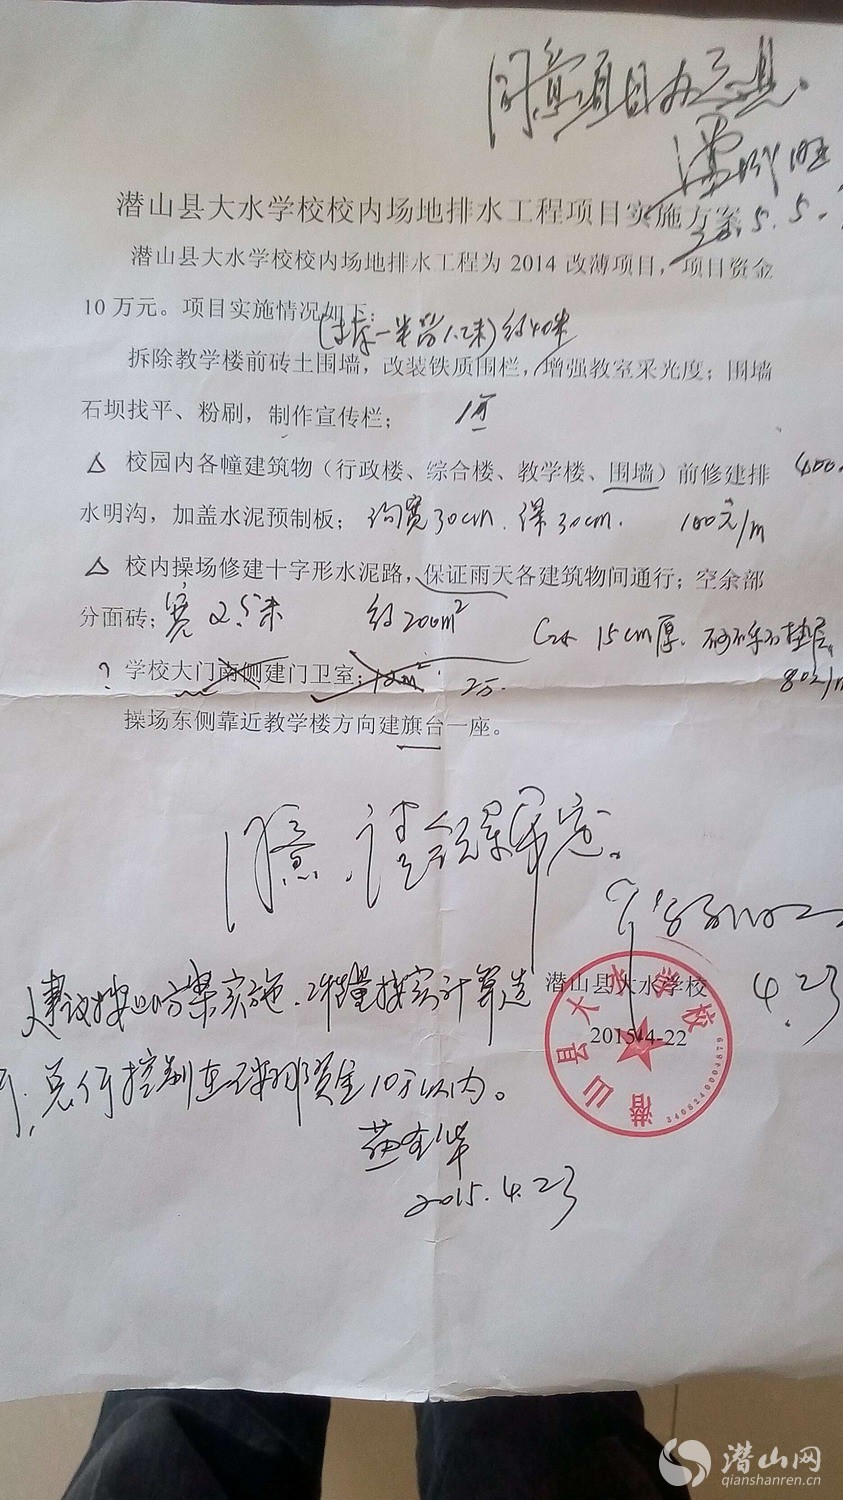 同意项目办意见。
2015.5.5.
潜山县大水学校校内场地排水工程项目实施方案
潜山县大水学校校内场地排水工程为 2014 改薄项目，项目资金
10 万元。项目实施情况如下：
约40米
拆除教学楼前砖土围墙，改装铁质围栏，增强教室采光度；围墙
石坝找平、粉刷，制作宣传栏；
△ 校园内各幢建筑物（行政楼、综合楼、教学楼、围墙）前修建排
400
水明沟，加盖水泥预制板；沟宽30cm. 深30cm. 100元/m
△ 校内操场修建十字形水泥路，保证雨天各建筑物间通行；空余部
分面砖；宽2.5米 约200m²
C20 15cm厚. 砂砾石垫层,
? 学校大门南侧建门卫室；12m² 2万.
80元/m
操场东侧靠近教学楼方向建旗台一座。
同意.请
4.23
潜山县大水学校
2015-4-22
潜山县大水学校
3408240004879
建议按此方案实施.工程量按实计算造
价.总价控制在 资金10万以内。
2015.4.23
潜山网
qianshanren.cn